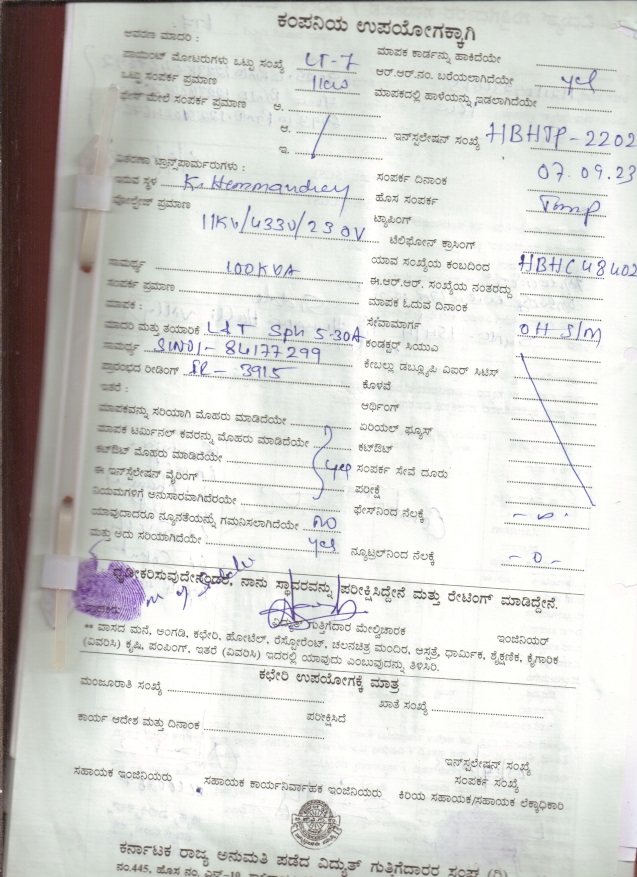 ಕಂಪನಿಯ ಉಪಯೋಗಕ್ಕಾಗಿ
ಆವರಣ ಮಾದರಿ :
ಮಾಪಕ ಕಾರ್ಡನ್ನು ಹಾಕಿದೆಯೇ
ಪಾಯಿಂಟ್ ಮೋಟರುಗಳು ಒಟ್ಟು ಸಂಖ್ಯೆ LT-7
ಆರ್.ಆರ್.ನಂ. ಬರೆಯಲಾಗಿದೆಯೇ yes
ಒಟ್ಟು ಸಂಪರ್ಕ ಪ್ರಮಾಣ
ಮಾಪಕದಲ್ಲಿ ಹಾಳೆಯನ್ನು ಇಡಲಾಗಿದೆಯೇ
ಫೇಸ್ ಮೇಲೆ ಸಂಪರ್ಕ ಪ್ರಮಾಣ ಅ.
ಆ.
ಇನ್‌ಸ್ಟಲೇಷನ್ ಸಂಖ್ಯೆ HBHTP-2202
ಇ.
ವಿತರಣಾ ಟ್ರಾನ್ಸ್‌ಫಾರ್ಮರುಗಳು :
ಸಂಪರ್ಕ ದಿನಾಂಕ 07.09.23
ಇರುವ ಸ್ಥಳ
ಹೊಸ ಸಂಪರ್ಕ Temp
ವೋಲ್ಟೇಜ್ ಪ್ರಮಾಣ 11KV/433V/230V
ಟ್ಯಾಪಿಂಗ್
ಟೆಲಿಫೋನ್ ಕ್ರಾಸಿಂಗ್
ಯಾವ ಸಂಖ್ಯೆಯ ಕಂಬದಿಂದ HBHC48402
ಸಾಮರ್ಥ್ಯ 100KVA
ಈ.ಆರ್.ಆರ್. ಸಂಖ್ಯೆಯ ನಂತರದ್ದು
ಸಂಪರ್ಕ ಪ್ರಮಾಣ
ಮಾಪಕ ಓದುವ ದಿನಾಂಕ
ಮಾಪಕ :
ಸೇವಾಮಾರ್ಗ OH S/M
ಮಾದರಿ ಮತ್ತು ತಯಾರಿಕೆ L&T Sph 5-30A
ಕಂಡಕ್ಟರ್ ಸಿಯುಎ
ಸಾಮರ್ಥ್ಯ SlNO/- 84177299
ಕೇಬಲ್ಲು ಡಬ್ಲ್ಯೂಪಿ ಎಐರ್ ಸಿಟಿಸ್
ಪ್ರಾರಂಭದ ರೀಡಿಂಗ್ IR - 3915
ಕೊಳವೆ
ಇತರೆ :
ಆರ್ಥಿಂಗ್
ಮಾಪಕವನ್ನು ಸರಿಯಾಗಿ ಮೊಹರು ಮಾಡಿದೆಯೇ
ಏರಿಯಲ್ ಫ್ಯೂಸ್
ಮಾಪಕ ಟರ್ಮಿನಲ್ ಕವರನ್ನು ಮೊಹರು ಮಾಡಿದೆಯೇ
ಕಟ್‌ಔಟ್
ಕಟ್‌ಔಟ್ ಮೊಹರು ಮಾಡಿದೆಯೇ yes
ಸಂಪರ್ಕ ಸೇವೆ ದೂರು
ಈ ಇನ್‌ಸ್ಟಲೇಷನ್ ವೈರಿಂಗ್
ಪರೀಕ್ಷೆ
ನಿಯಮಗಳಿಗೆ ಅನುಸಾರವಾಗಿದೆರಯೇ
ಫೇಸ್‌ನಿಂದ ನೆಲಕ್ಕೆ
ಯಾವುದಾದರೂ ನ್ಯೂನತೆಯನ್ನು ಗಮನಿಸಲಾಗಿದೆಯೇ NO
ಮತ್ತು ಅದು ಸರಿಯಾಗಿದೆಯೇ yes
ನ್ಯೂಟ್ರಲ್‌ನಿಂದ ನೆಲಕ್ಕೆ -0-
ದೃಢೀಕರಿಸುವುದೇನೆಂದರೆ, ನಾನು ಸ್ಥಾವರವನ್ನು ಪರೀಕ್ಷಿಸಿದ್ದೇನೆ ಮತ್ತು ರೇಟಿಂಗ್ ಮಾಡಿದ್ದೇನೆ.
ವಿದ್ಯುತ್ ಗುತ್ತಿಗೆದಾರ ಮೇಲ್ವಿಚಾರಕ
ಇಂಜಿನಿಯರ್
** ವಾಸದ ಮನೆ, ಅಂಗಡಿ, ಕಛೇರಿ, ಹೋಟೆಲ್, ರೆಸ್ಟೋರೆಂಟ್, ಚಲನಚಿತ್ರ ಮಂದಿರ, ಆಸ್ಪತ್ರೆ, ಧಾರ್ಮಿಕ, ಶೈಕ್ಷಣಿಕ, ಕೈಗಾರಿಕ
(ವಿವರಿಸಿ) ಕೃಷಿ, ಪಂಪಿಂಗ್, ಇತರೆ (ವಿವರಿಸಿ) ಇದರಲ್ಲಿ ಯಾವುದು ಎಂಬುವದನ್ನು ತಿಳಿಸಿರಿ.
ಕಛೇರಿ ಉಪಯೋಗಕ್ಕೆ ಮಾತ್ರ
ಮಂಜೂರಾತಿ ಸಂಖ್ಯೆ
ಖಾತೆ ಸಂಖ್ಯೆ
ಕಾರ್ಯ ಆದೇಶ ಮತ್ತು ದಿನಾಂಕ
ಪರೀಕ್ಷಿಸಿದೆ
ಇನ್‌ಸ್ಟಲೇಷನ್ ಸಂಖ್ಯೆ
ಸಂಪರ್ಕ ಸಂಖ್ಯೆ
ಸಹಾಯಕ ಇಂಜಿನಿಯರು
ಸಹಾಯಕ ಕಾರ್ಯನಿರ್ವಾಹಕ ಇಂಜಿನಿಯರು
ಕಿರಿಯ ಸಹಾಯಕ/ಸಹಾಯಕ ಲೆಕ್ಕಾಧಿಕಾರಿ
ಕರ್ನಾಟಕ ರಾಜ್ಯ ಅನುಮತಿ ಪಡೆದ ವಿದ್ಯುತ್ ಗುತ್ತಿಗೆದಾರರ ಸಂಘ (ರಿ)
ನಂ.445, ಹೊಸ ನಂ.